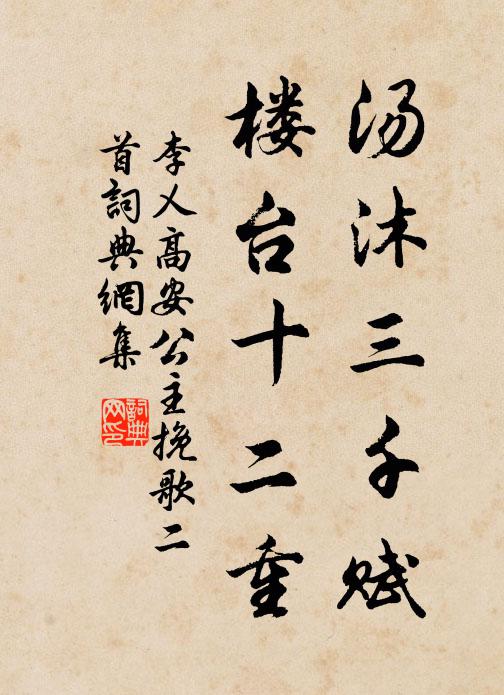 汤沐三千赋
楼台十二重
李乂高安公主挽歌二
首詞典網集
詞典网印